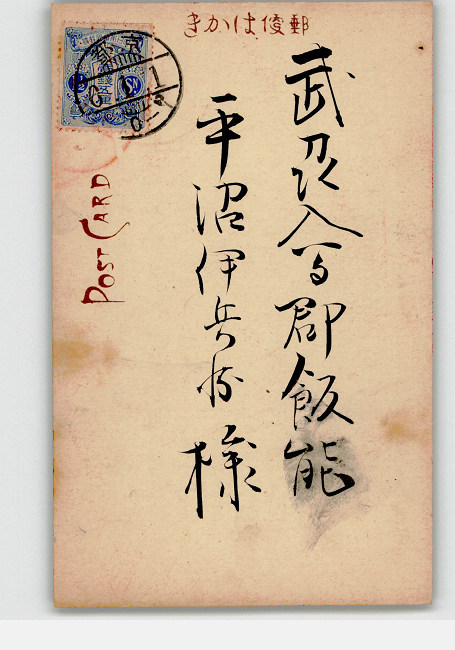 郵便はかき
武刕入間郡飯能
平沼伊兵衛様
POST CARD